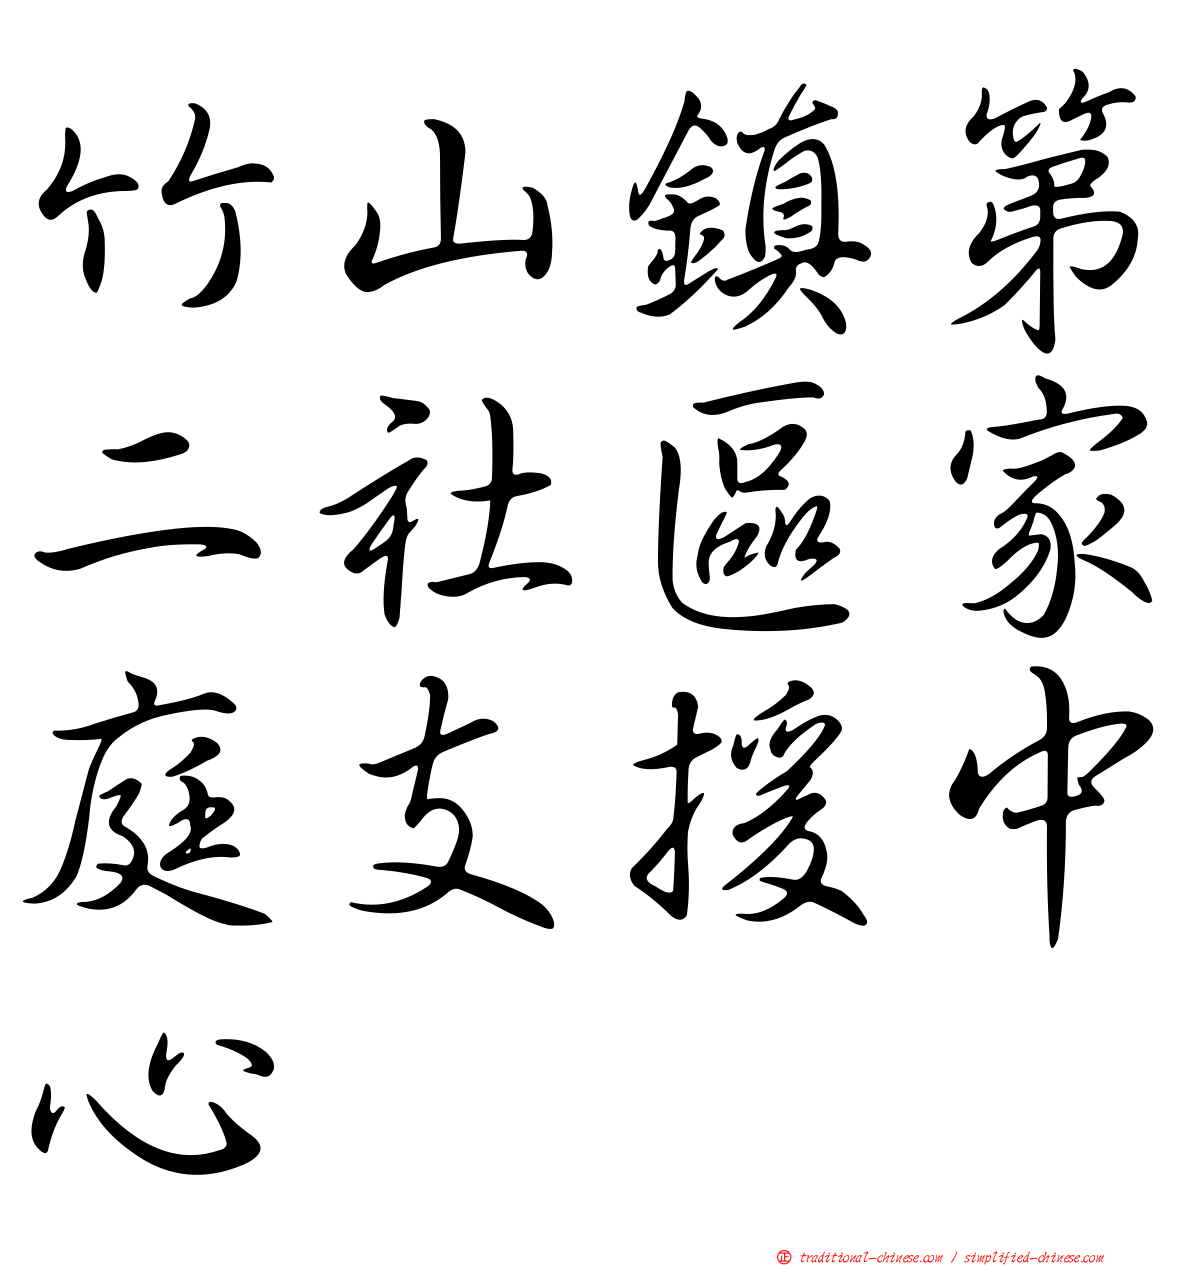 竹山鎮第
二社區家
庭支援中
心
正 traditional-chinese.com / simplified-chinese.com